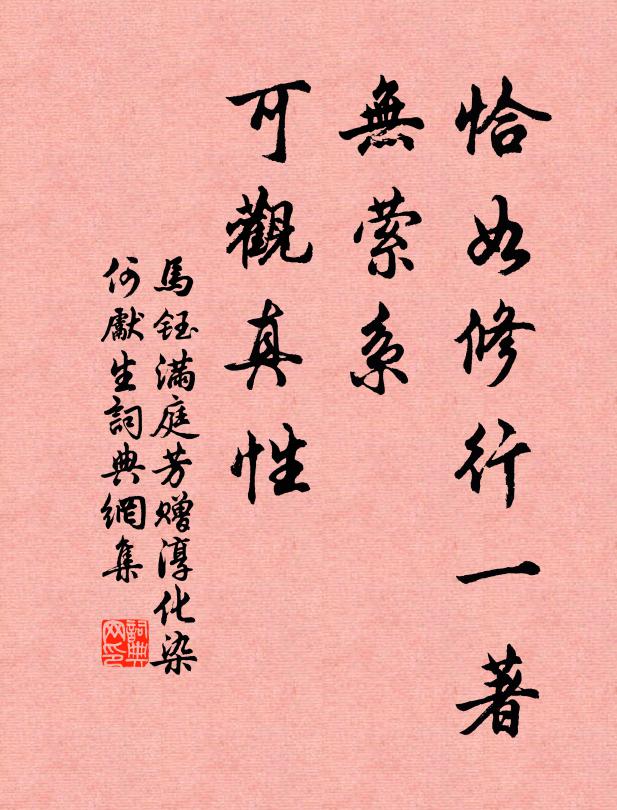 恰如修行一著
無縈系
可觀真性
馬鈺滿庭芳赠淳化染
何獻生詞典網集
詞典网印